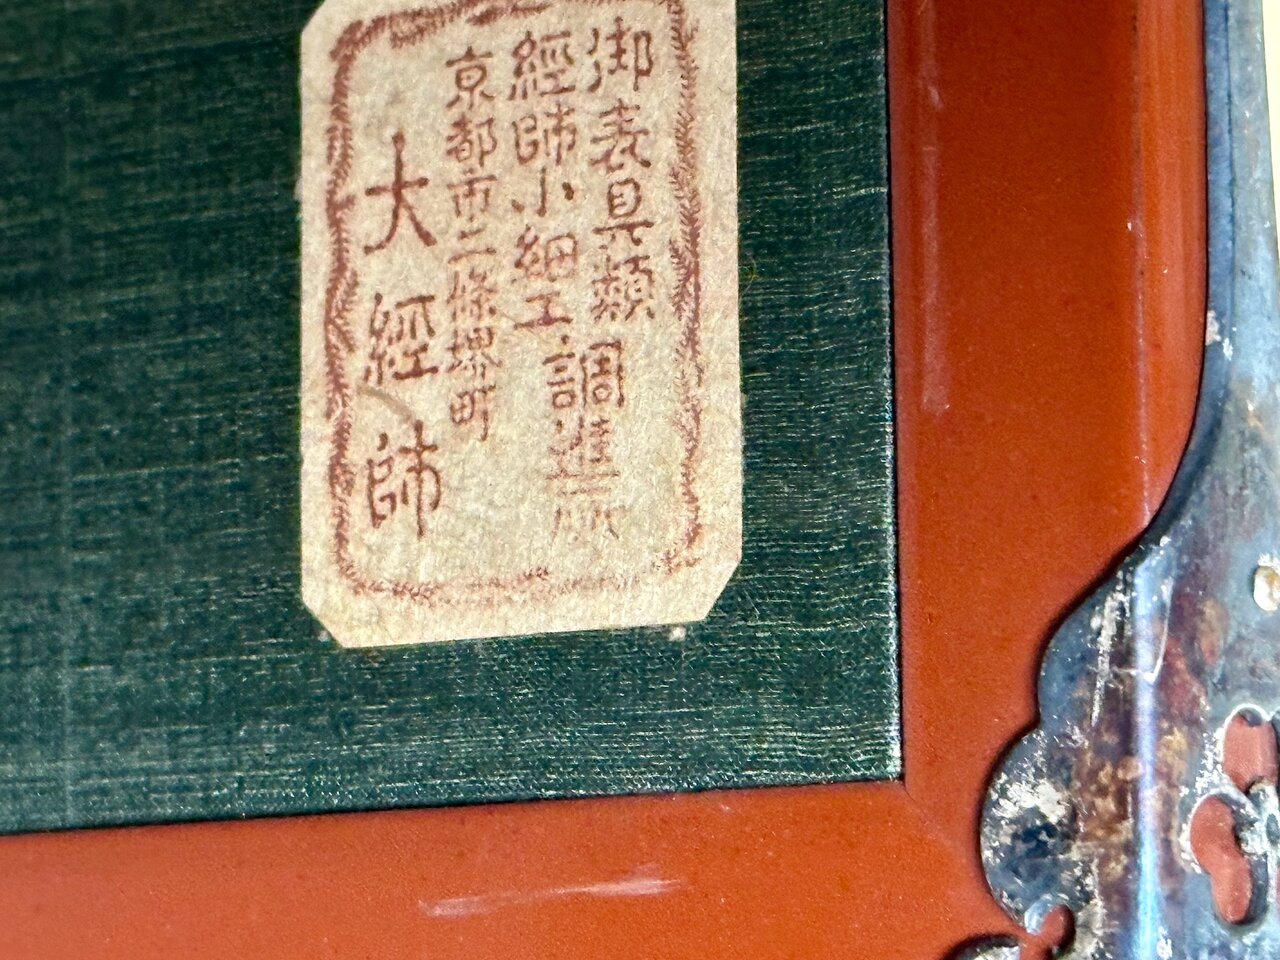 御表具類
經師小細工
調進
京都市二條堺町
大經師